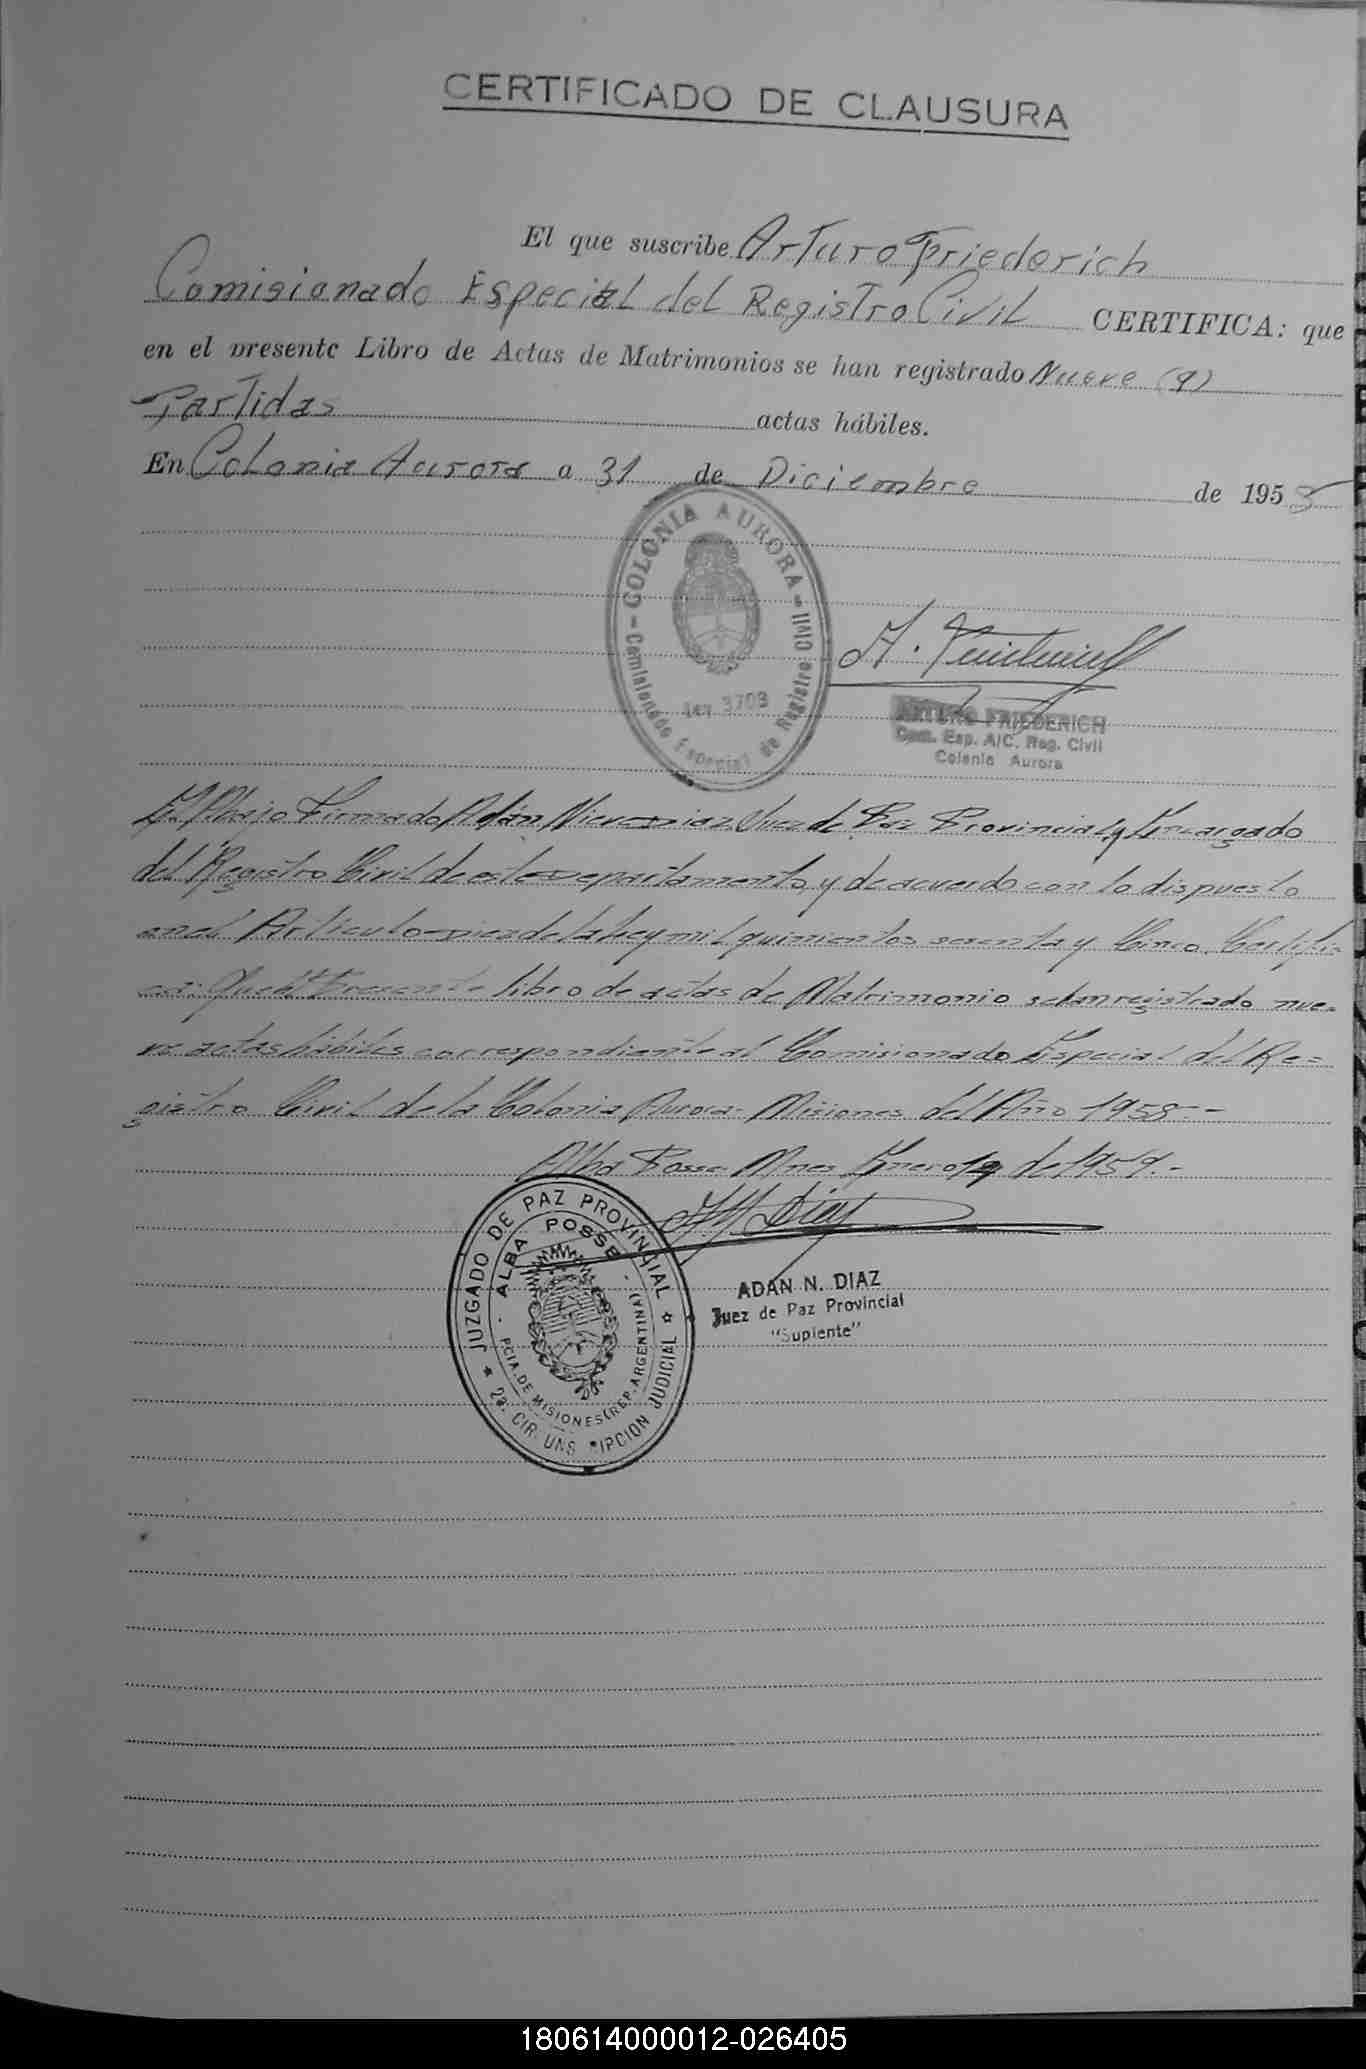 CERTIFICADO DE CLAUSURA
El que suscribe Arturo Friederich
Comisionado Especial del Registro Civil CERTIFICA: que
en el presente Libro de Actas de Matrimonios se han registrado Nueve (9)
Partidas actas hábiles.
En Colonia Aurora a 31 de Diciembre de 1958
COLONIA AURORA
Comisionado Especial de Registro Civil
Ley 3703
ARTURO FRIEDERICH
Com. Esp. A/C. Reg. Civil
Colonia Aurora
El Abajo Firmado Adán Diaz Juez de Paz Provincial y Encargado
del Registro Civil de este Departamento, y de acuerdo con lo dispuesto
en el Artículo diez de la Ley mil quinientos sesenta y Cinco. Certifi-
ca: Que el Presente libro de actas de Matrimonio se han registrado nue-
ve actas hábiles correspondiente al Comisionado Especial del Re=
gistro Civil de la Colonia Aurora Misiones del Año 1958.-
Alba Posse Mnes Enero de 1959.-
JUZGADO DE PAZ PROVINCIAL
ALBA POSSE
PCIA. DE MISIONES (REP. ARGENTINA)
2a. CIR UNS RIPCION JUDICIAL
ADAN N. DIAZ
Juez de Paz Provincial
"Suplente"
180614000012-026405